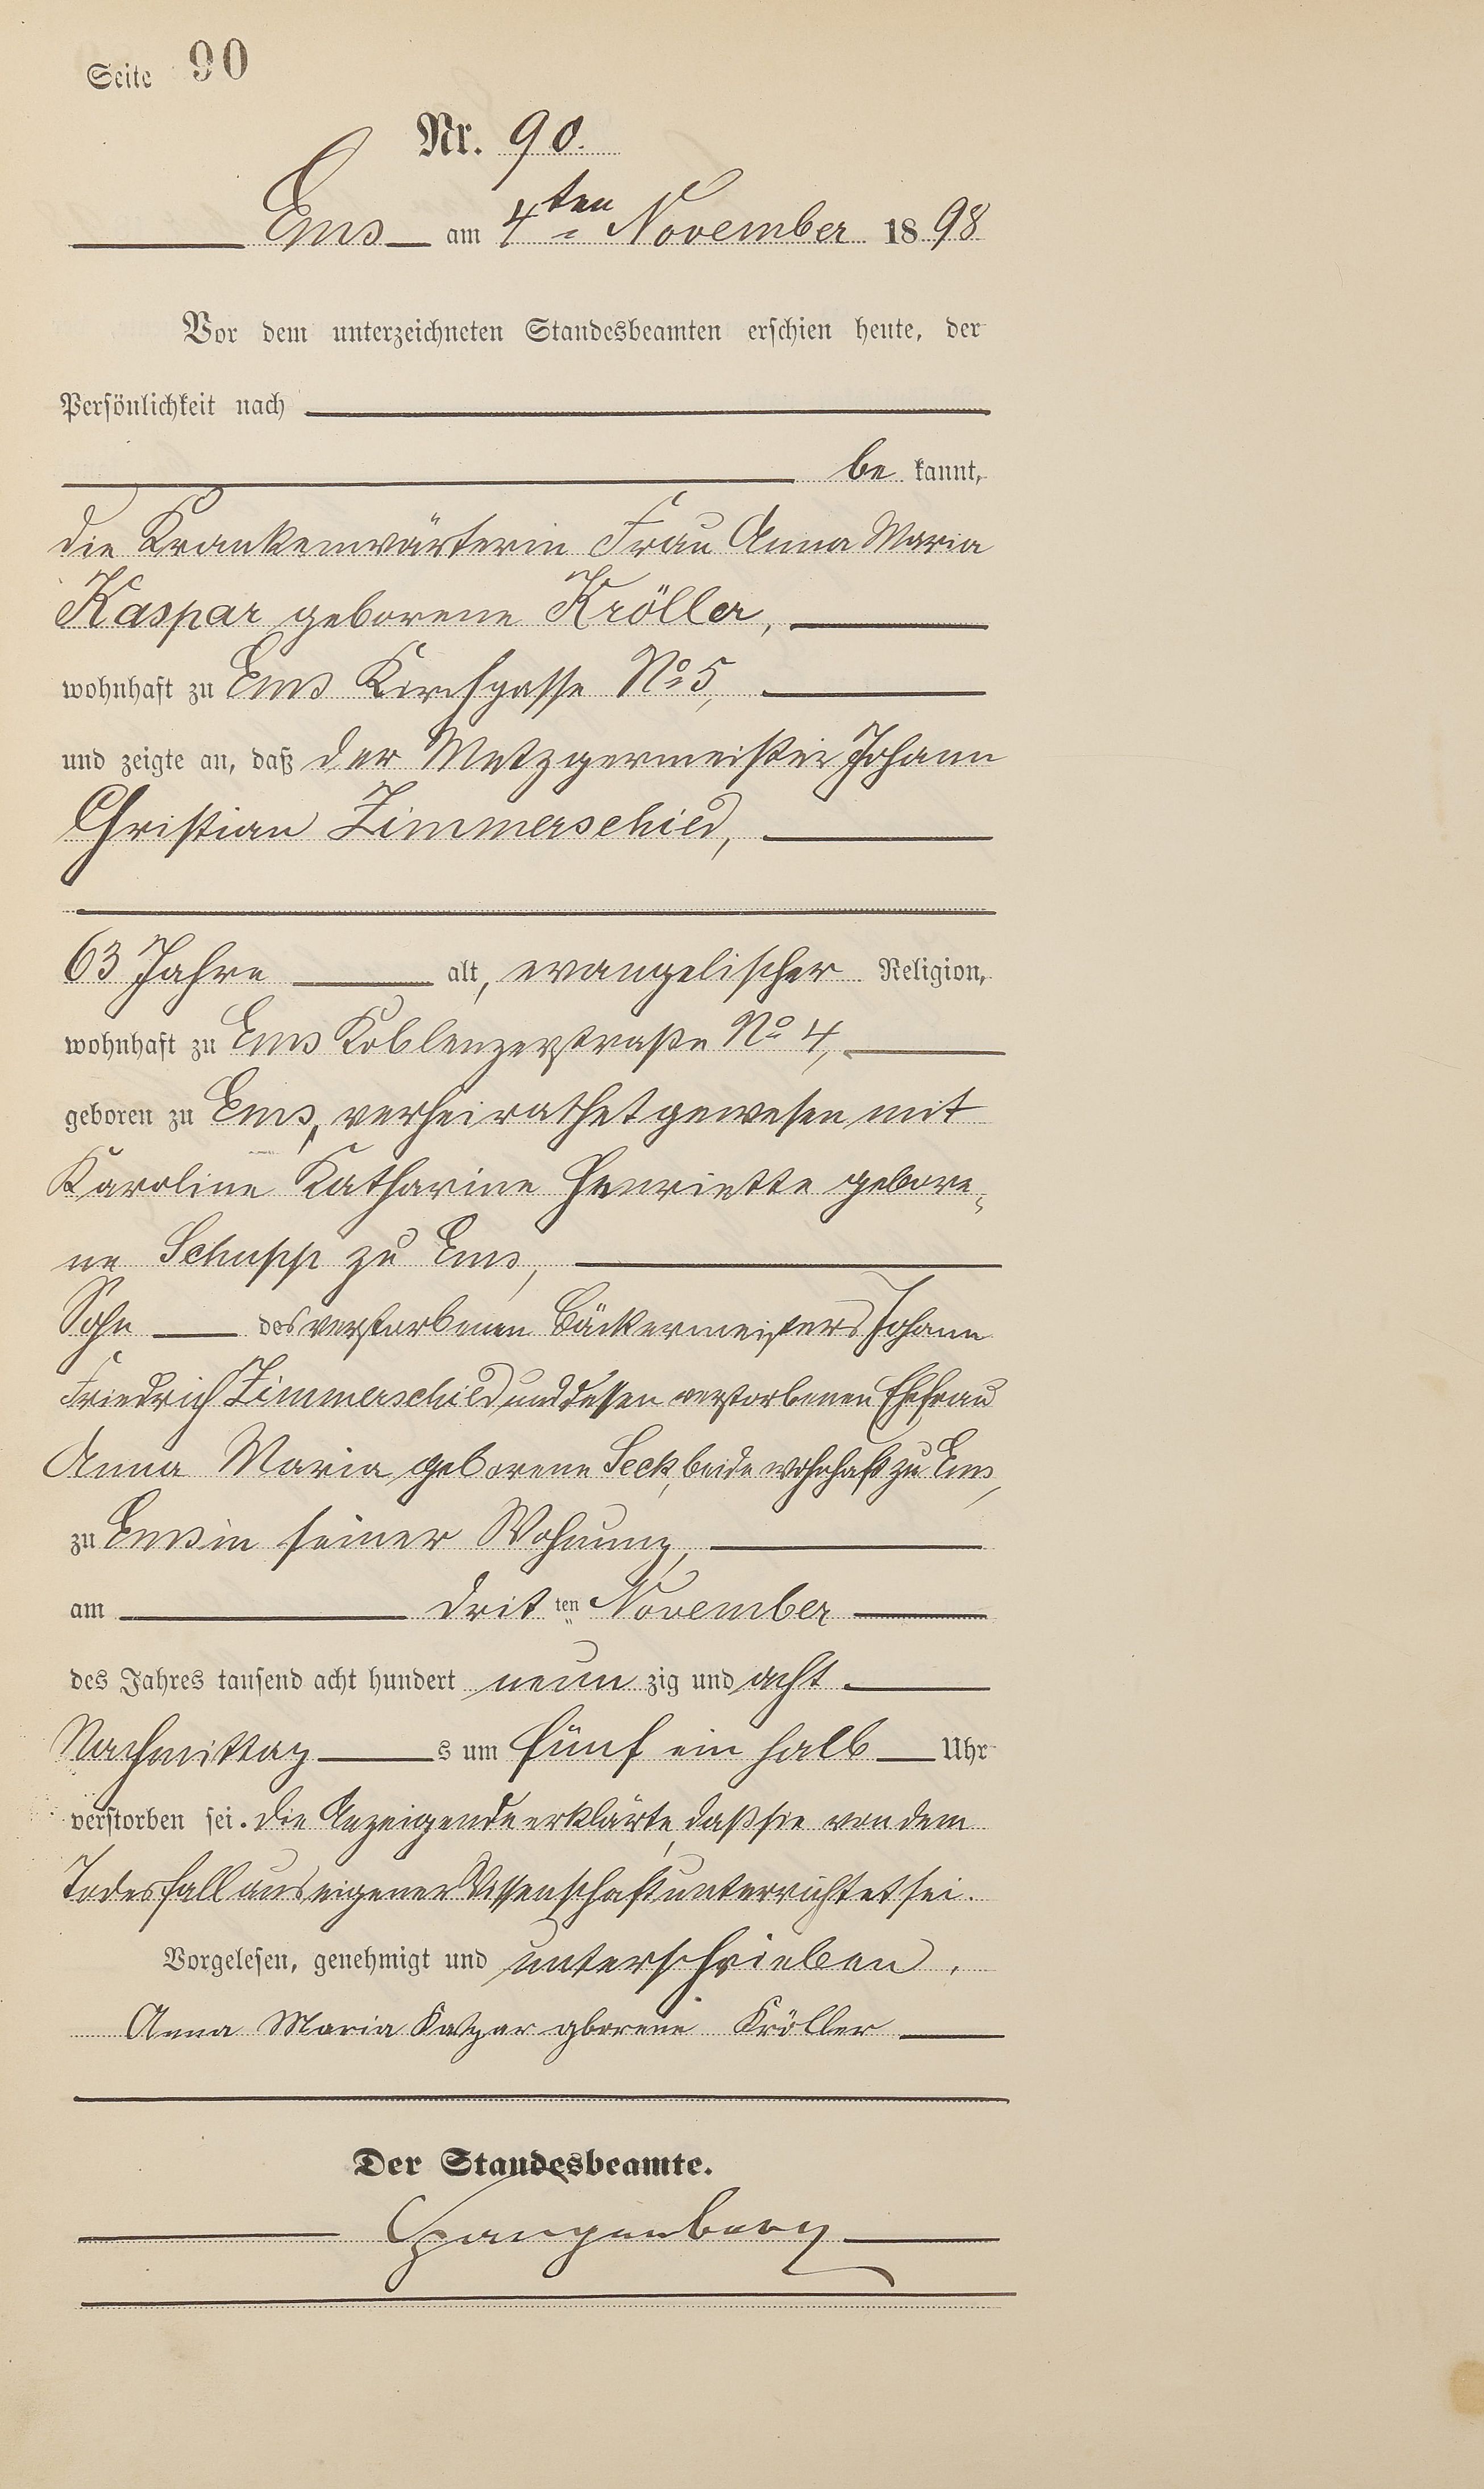 Seite 90
Nr. 90.
Ems am 4ten November 1898
Vor dem unterzeichneten Standesbeamten erschien heute, der
Persönlichkeit nach
be kannt,
die Krankenwärterin Frau Anna Maria
Kaspar geborene Kröller,
wohnhaft zu Ems Kirchgasse No 5,
und zeigte an, daß der Metzgermeister Johann
Christian Zimmerschied,
63 Jahre alt, evangelischer Religion,
wohnhaft zu Ems Koblenzerstraße No 4,
geboren zu Ems, verheirathet gewesen mit
Karoline Katharine Henriette gebore-
ne Schupp zu Ems,
Sohn des verstorbenen Bäckermeisters Johann
Friedrich Zimmerschied und dessen verstorbenen Ehefrau
Anna Maria geborene Seck, beide wohnhaft zu Ems,
zu Ems in seiner Wohnung,
am dritten November
des Jahres tausend acht hundert neun zig und acht
Nachmittags um fünf ein halb Uhr
verstorben sei. Die Anzeigende erklärte, daß sie von dem
Todesfall aus eigener Wissenschaft unterrichtet sei.
Vorgelesen, genehmigt und unterschrieben.
Anna Maria Kaspar gborene Kröller
Der Standesbeamte.
Spangenberg